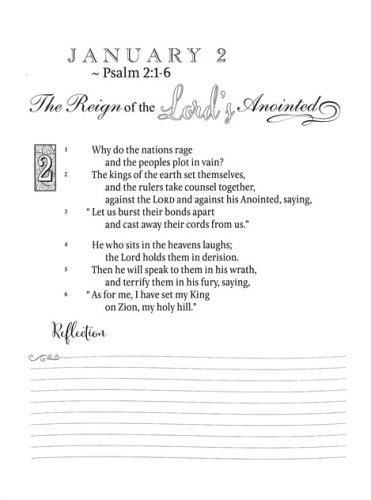 JANUARY 2
~ Psalm 2:1-6
The Reign of the Lord's Anointed
2
1 Why do the nations rage
and the peoples plot in vain?
2 The kings of the earth set themselves,
and the rulers take counsel together,
against the LORD and against his Anointed, saying,
3 "Let us burst their bonds apart
and cast away their cords from us."
4 He who sits in the heavens laughs;
the Lord holds them in derision.
5 Then he will speak to them in his wrath,
and terrify them in his fury, saying,
6 "As for me, I have set my King
on Zion, my holy hill."
Reflection